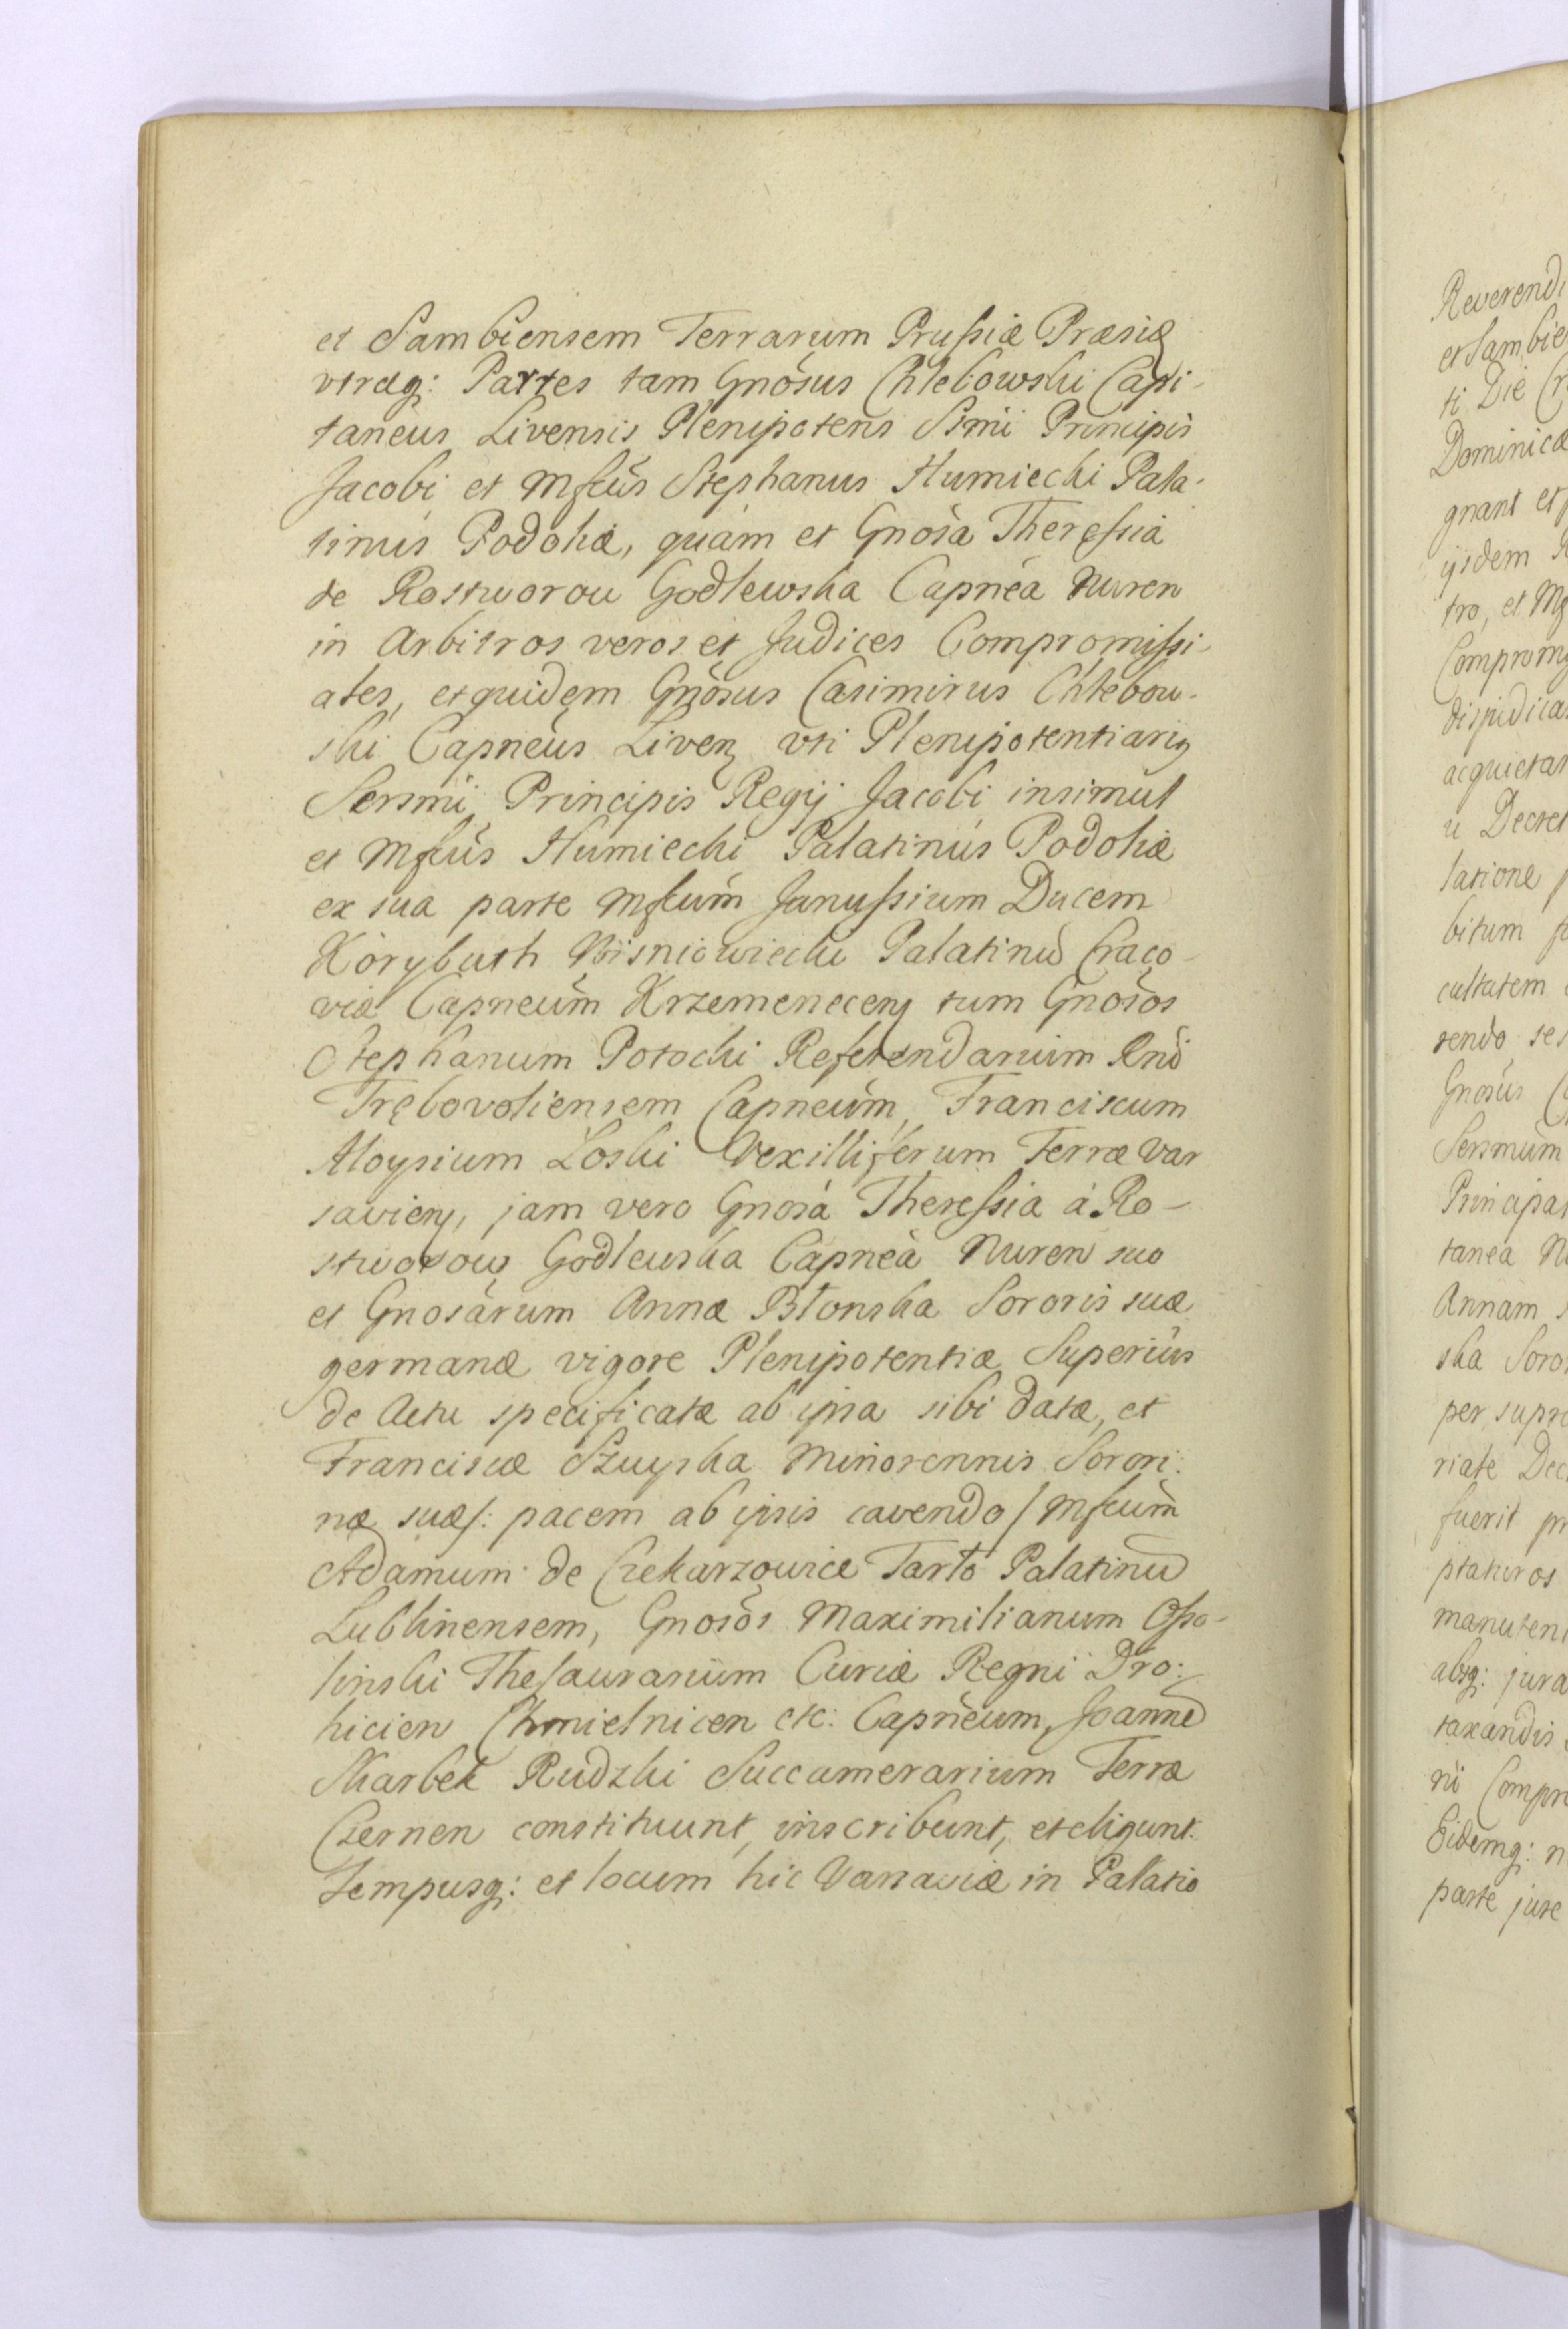 et Sambiensem Terrarum Prussiæ Præsiæ
vtræq: Partes tam Gnosus Chlebowski Capi-
taneus Livensis Plenipotens Srmi Principis
Jacobi et Mfcus Stephanus Humiecki Pala-
tinus Podoliæ, quam et Gnosa Theressia
de Rostworow Godlewska Capnea Nuren
in Arbitros veros et Judices Compromissi-
ales, et quidem Gnosus Casimirus Chlebow-
ski Capneus Liven vti Plenipotentiariq
Sersmi Principis Regij Jacobi insimul
et Mfcus Humiecki Palatinus Podoliæ
ex sua parte Mfcum Janussium Ducem
Korybuth Wisniowiecki Palatinu Craco-
viæ Capneum Krzemenecen tum Gnosos
Stephanum Potocki Referendarium Rni
Trębovoliensem Capneum, Franciscum
Aloysium Loski Vexilliferum Terræ Var
savien, jam vero Gnosa Theressia à Ro-
stworow Godlewska Capnea Nuren suo
et Gnosarum Annæ Błonska Sororis suæ
germanæ vigore Plenipotentiæ Superius
de Actu specificatæ ab ipsa sibi datæ, et
Franciscæ Szuyska Minorennis Sorori:
næ suæ/: pacem ab ipsis cavendo / Mfcum
Adamum de Czekarzowice Tarło Palatinu
Lublinensem, Gnosos Maximilianum Osso-
linski Thesaurarium Curiæ Regni Dro:
hicien Chmielnicen etc: Capneum, Joanne
Skarbek Rudzki Succamerarium Terræ
Czernen constituunt, inscribunt, et eligunt.
Tempusq: et locum hic Varsaviæ in Palatio
Reverendi
et Sambie
ti Die
Dominicæ
gnant et
ijsdem
tro, et
dijudica
acquieta
Decret
latione
bitum
cultatem
rendo se
Gnosus
Sersmum
Principa
tanea
Annam
ska Soro
per supra
riale Dec
fuerit
ptaturos
manuten
absq: jura
taxandis
rii Compro
Eidemq:
parte jure